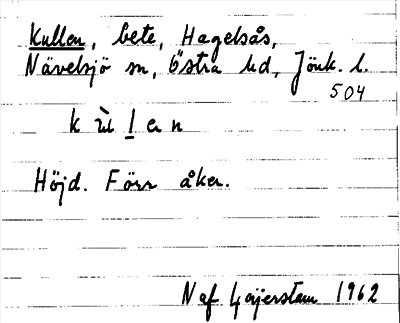 Kullen, bete, Hagelsås,
Nävelsjö sn, Östra hd, Jönk. l.
504
k ù l l e n
Höjd. Förr åker.
N af Geijerstam 1962